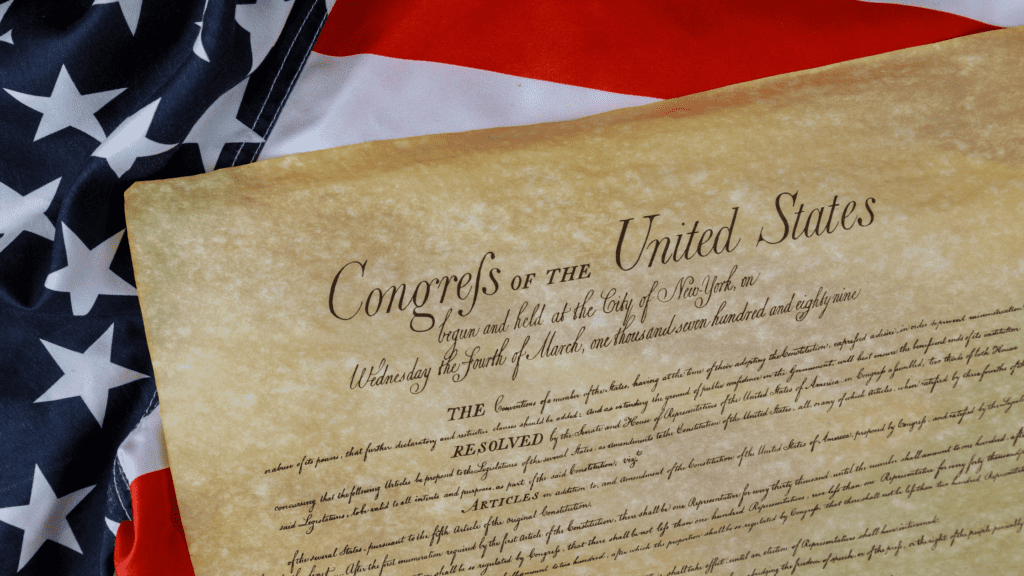 Congreſs OF THE United States
begun and held at the City of New York, on
Wednesday the Fourth of March, one thousand seven hundred and eighty nine
THE Conventions of a number of the States, having at the time of their adopting the Constitution, expressed a desire, in order to prevent misconstruction
of its powers, that further declaratory and restrictive clauses should be added: And as extending the ground of public confidence in the Government, will best ensure the beneficent ends of its institution
RESOLVED by the Senate and House of Representatives of the United States of America, in Congress assembled, two thirds of both Houses
concurring, that the following Articles be proposed to the Legislatures of the several States, as amendments to the Constitution of the United States, all, or any of which Articles, when ratified by three fourths of the
said Legislatures, to be valid to all intents and purposes, as part of the said Constitution; vizt.
ARTICLES in addition to, and Amendment of the Constitution of the United States of America, proposed by Congress, and ratified by the Legislatures
of the several States, pursuant to the fifth Article of the original Constitution.
After the first enumeration required by the first Article of the Constitution, there shall be one Representative for every thirty thousand, until the number shall amount to one hundred, after
shall be so regulated by Congress, that there shall be not less than one hundred Representatives, nor less than one Representative for every forty thousand
shall amount to two hundred, after which the proportion shall be so regulated by Congress, that there shall not be less than two hundred Representatives
shall take effect, until an election of Representatives shall have intervened.
abridging the freedom of speech, or of the press, or the right of the people peaceably